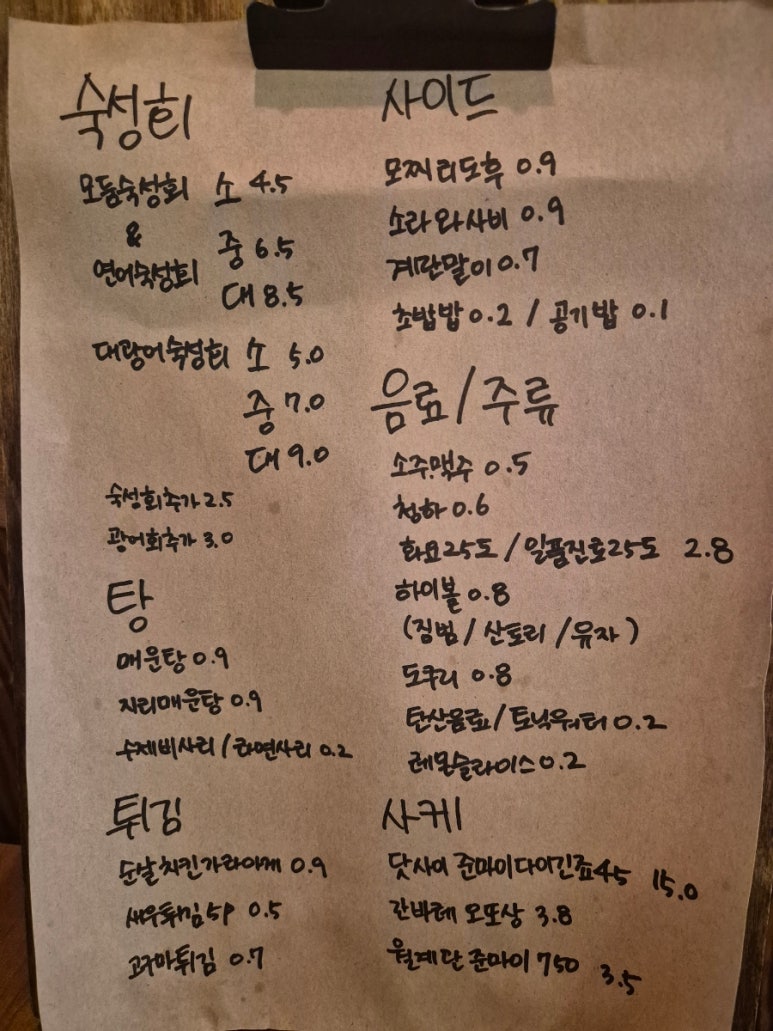 숙성회
모둠숙성회 소 4.5
&
중 6.5
연어숙성회
대 8.5
대광어숙성회 소 5.0
중 7.0
대 9.0
숙성회추가 2.5
광어회추가 3.0
탕
매운탕 0.9
지리매운탕 0.9
수제비사리 / 라면사리 0.2
튀김
순살치킨가라아게 0.9
새우튀김5P 0.5
고구마튀김 0.7
사이드
모찌리도후 0.9
소라와사비 0.9
계란말이 0.7
초밥밥 0.2 / 공기밥 0.1
음료 / 주류
소주.맥주 0.5
청하 0.6
화요25도 / 일품진로25도 2.8
하이볼 0.8
(짐빔 / 산토리 / 유자)
도쿠리 0.8
탄산음료 / 토닉워터 0.2
레몬슬라이스 0.2
사케
닷사이 준마이다이긴죠45 15.0
간바레 오또상 3.8
월계단 준마이 750 3.5